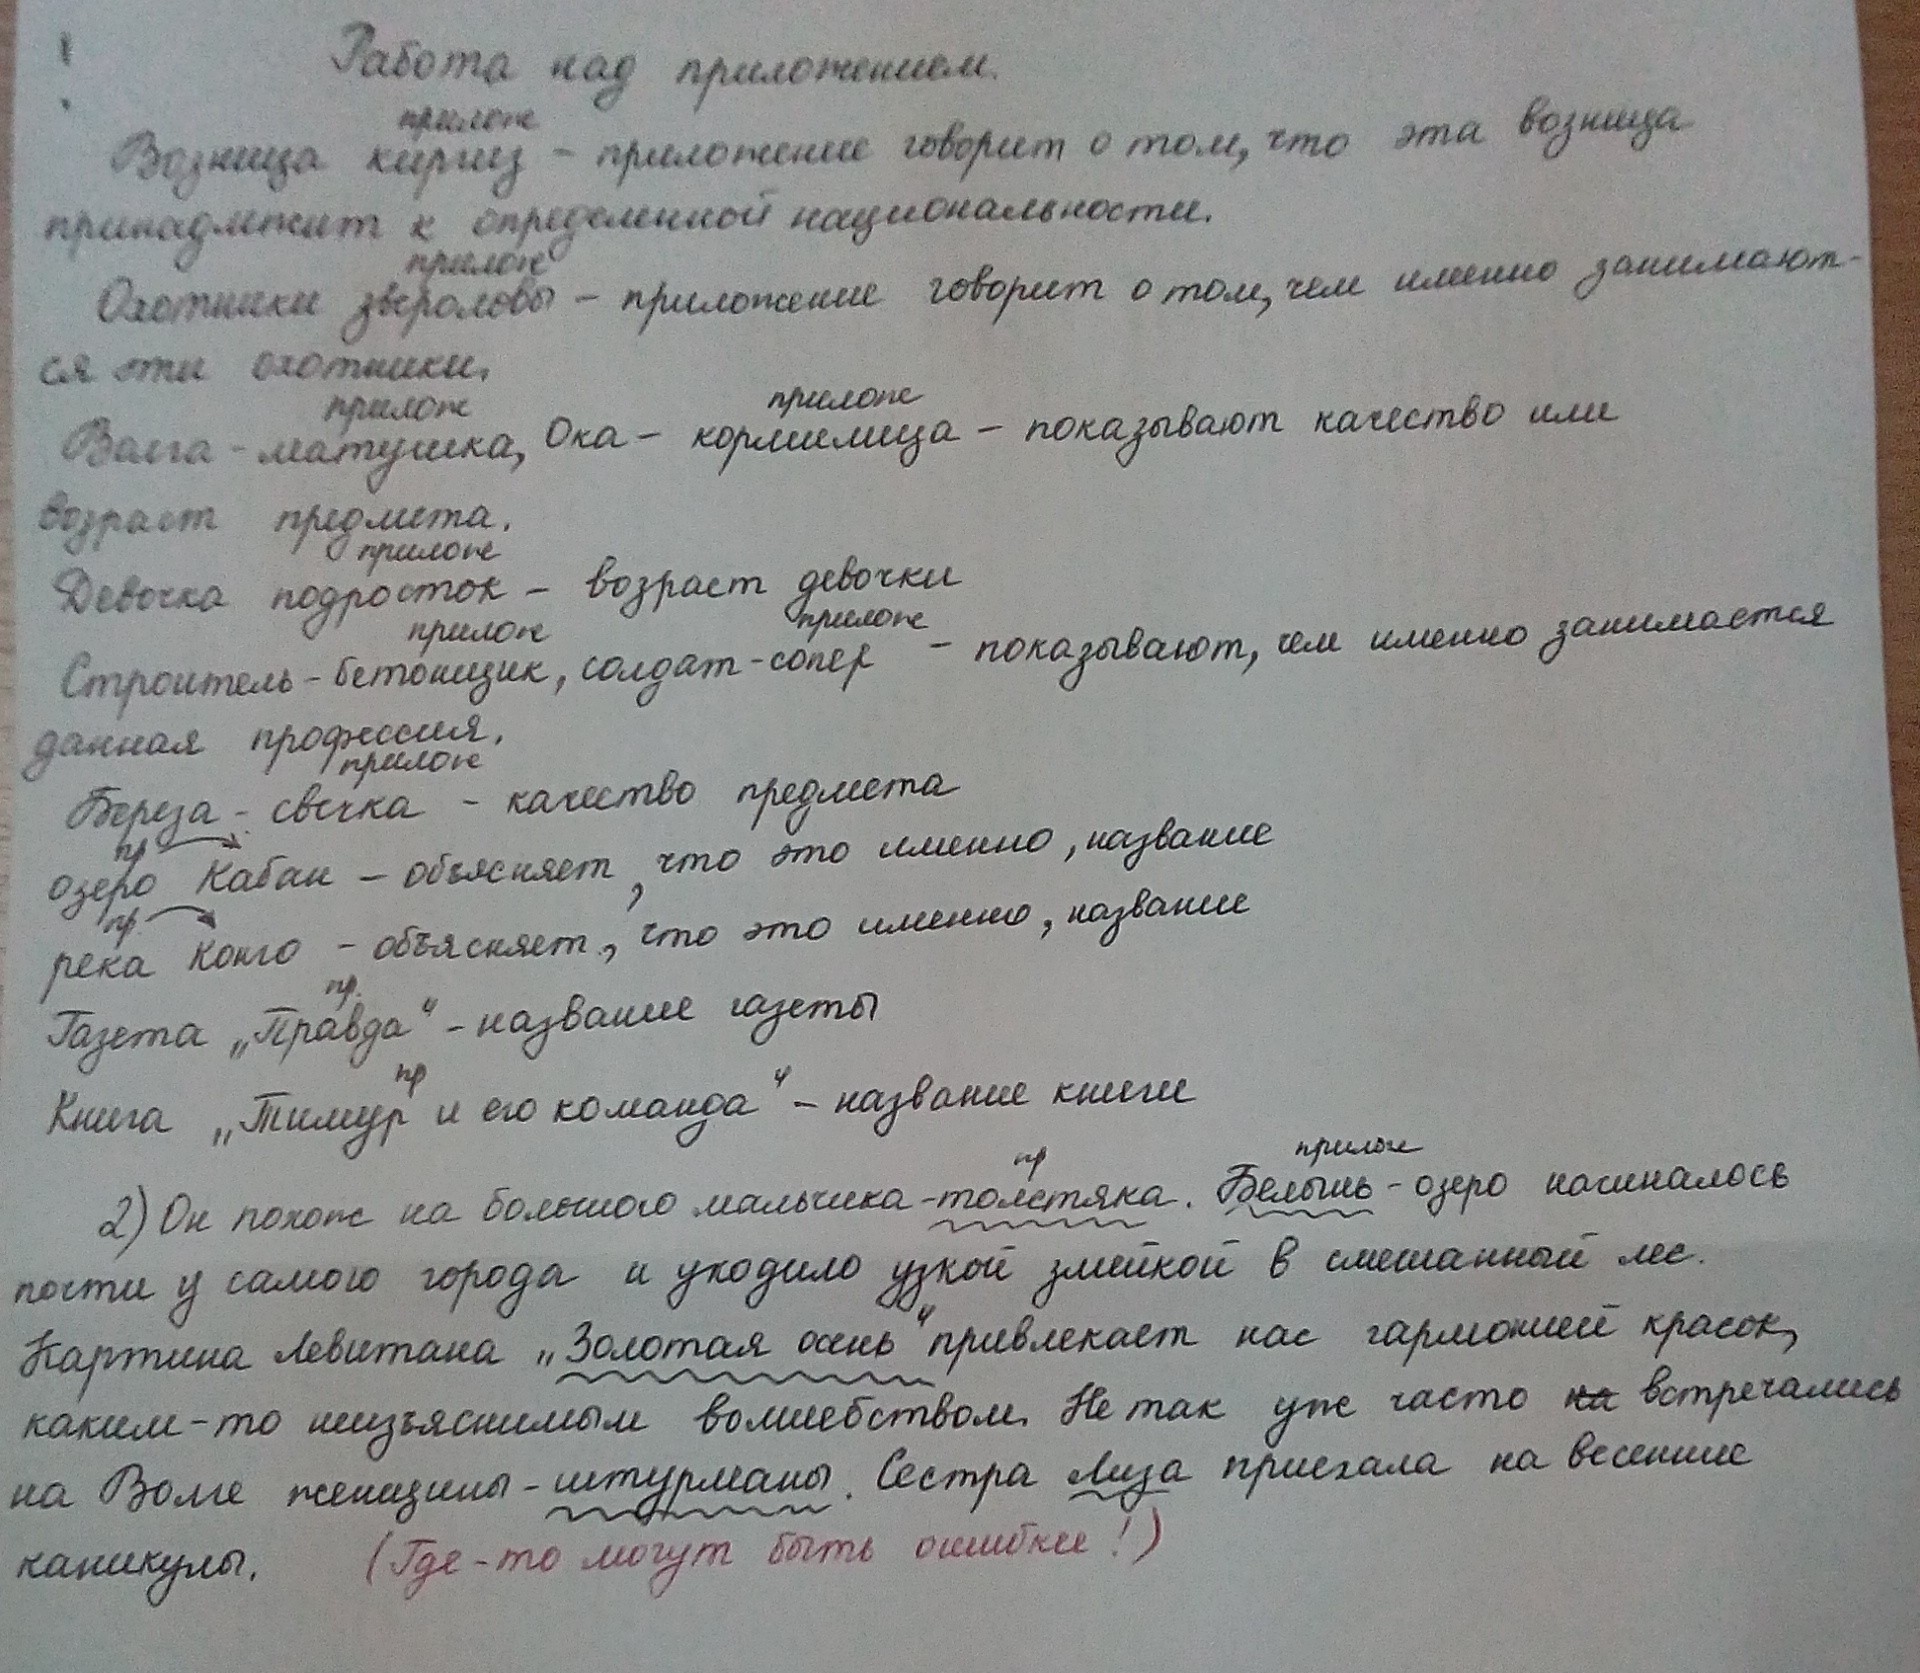 Работа над приложением.
прилож
Возница киргиз – приложение говорит о том, что эта возница
принадлежит к определенной национальности.
прилож
Охотники звероловы – приложение говорит о том, чем именно занимают-
ся эти охотники.
прилож прилож
Волга - матушка, Ока – кормилица – показывают качество или
возраст предмета.
прилож
Девочка подросток – возраст девочки
прилож прилож
Строитель - бетонщик, солдат - сопер – показывают, чем именно занимается
данная профессия.
прилож
Береза - свечка - качество предмета
пр
озеро Кабан – объясняет, что это именно, название
пр.
река Конго - объясняет, что это именно, название
пр.
Газета „Правда“ - название газеты
пр
Книга „Тимур и его команда“ – название книги
пр прилож
2) Он похож на большого мальчика - толстяка. Белышь - озеро начиналось
почти у самого города и уходило узкой змейкой в смешанный лес.
Картина Левитана „Золотая осень“ привлекает нас гармонией красок,
каким-то неизъяснимым волшебством. Не так уж часто на встречались
на Волге женщины - штурманы. Сестра Лиза приехала на весенние
каникулы. (Где-то могут быть ошибки!)